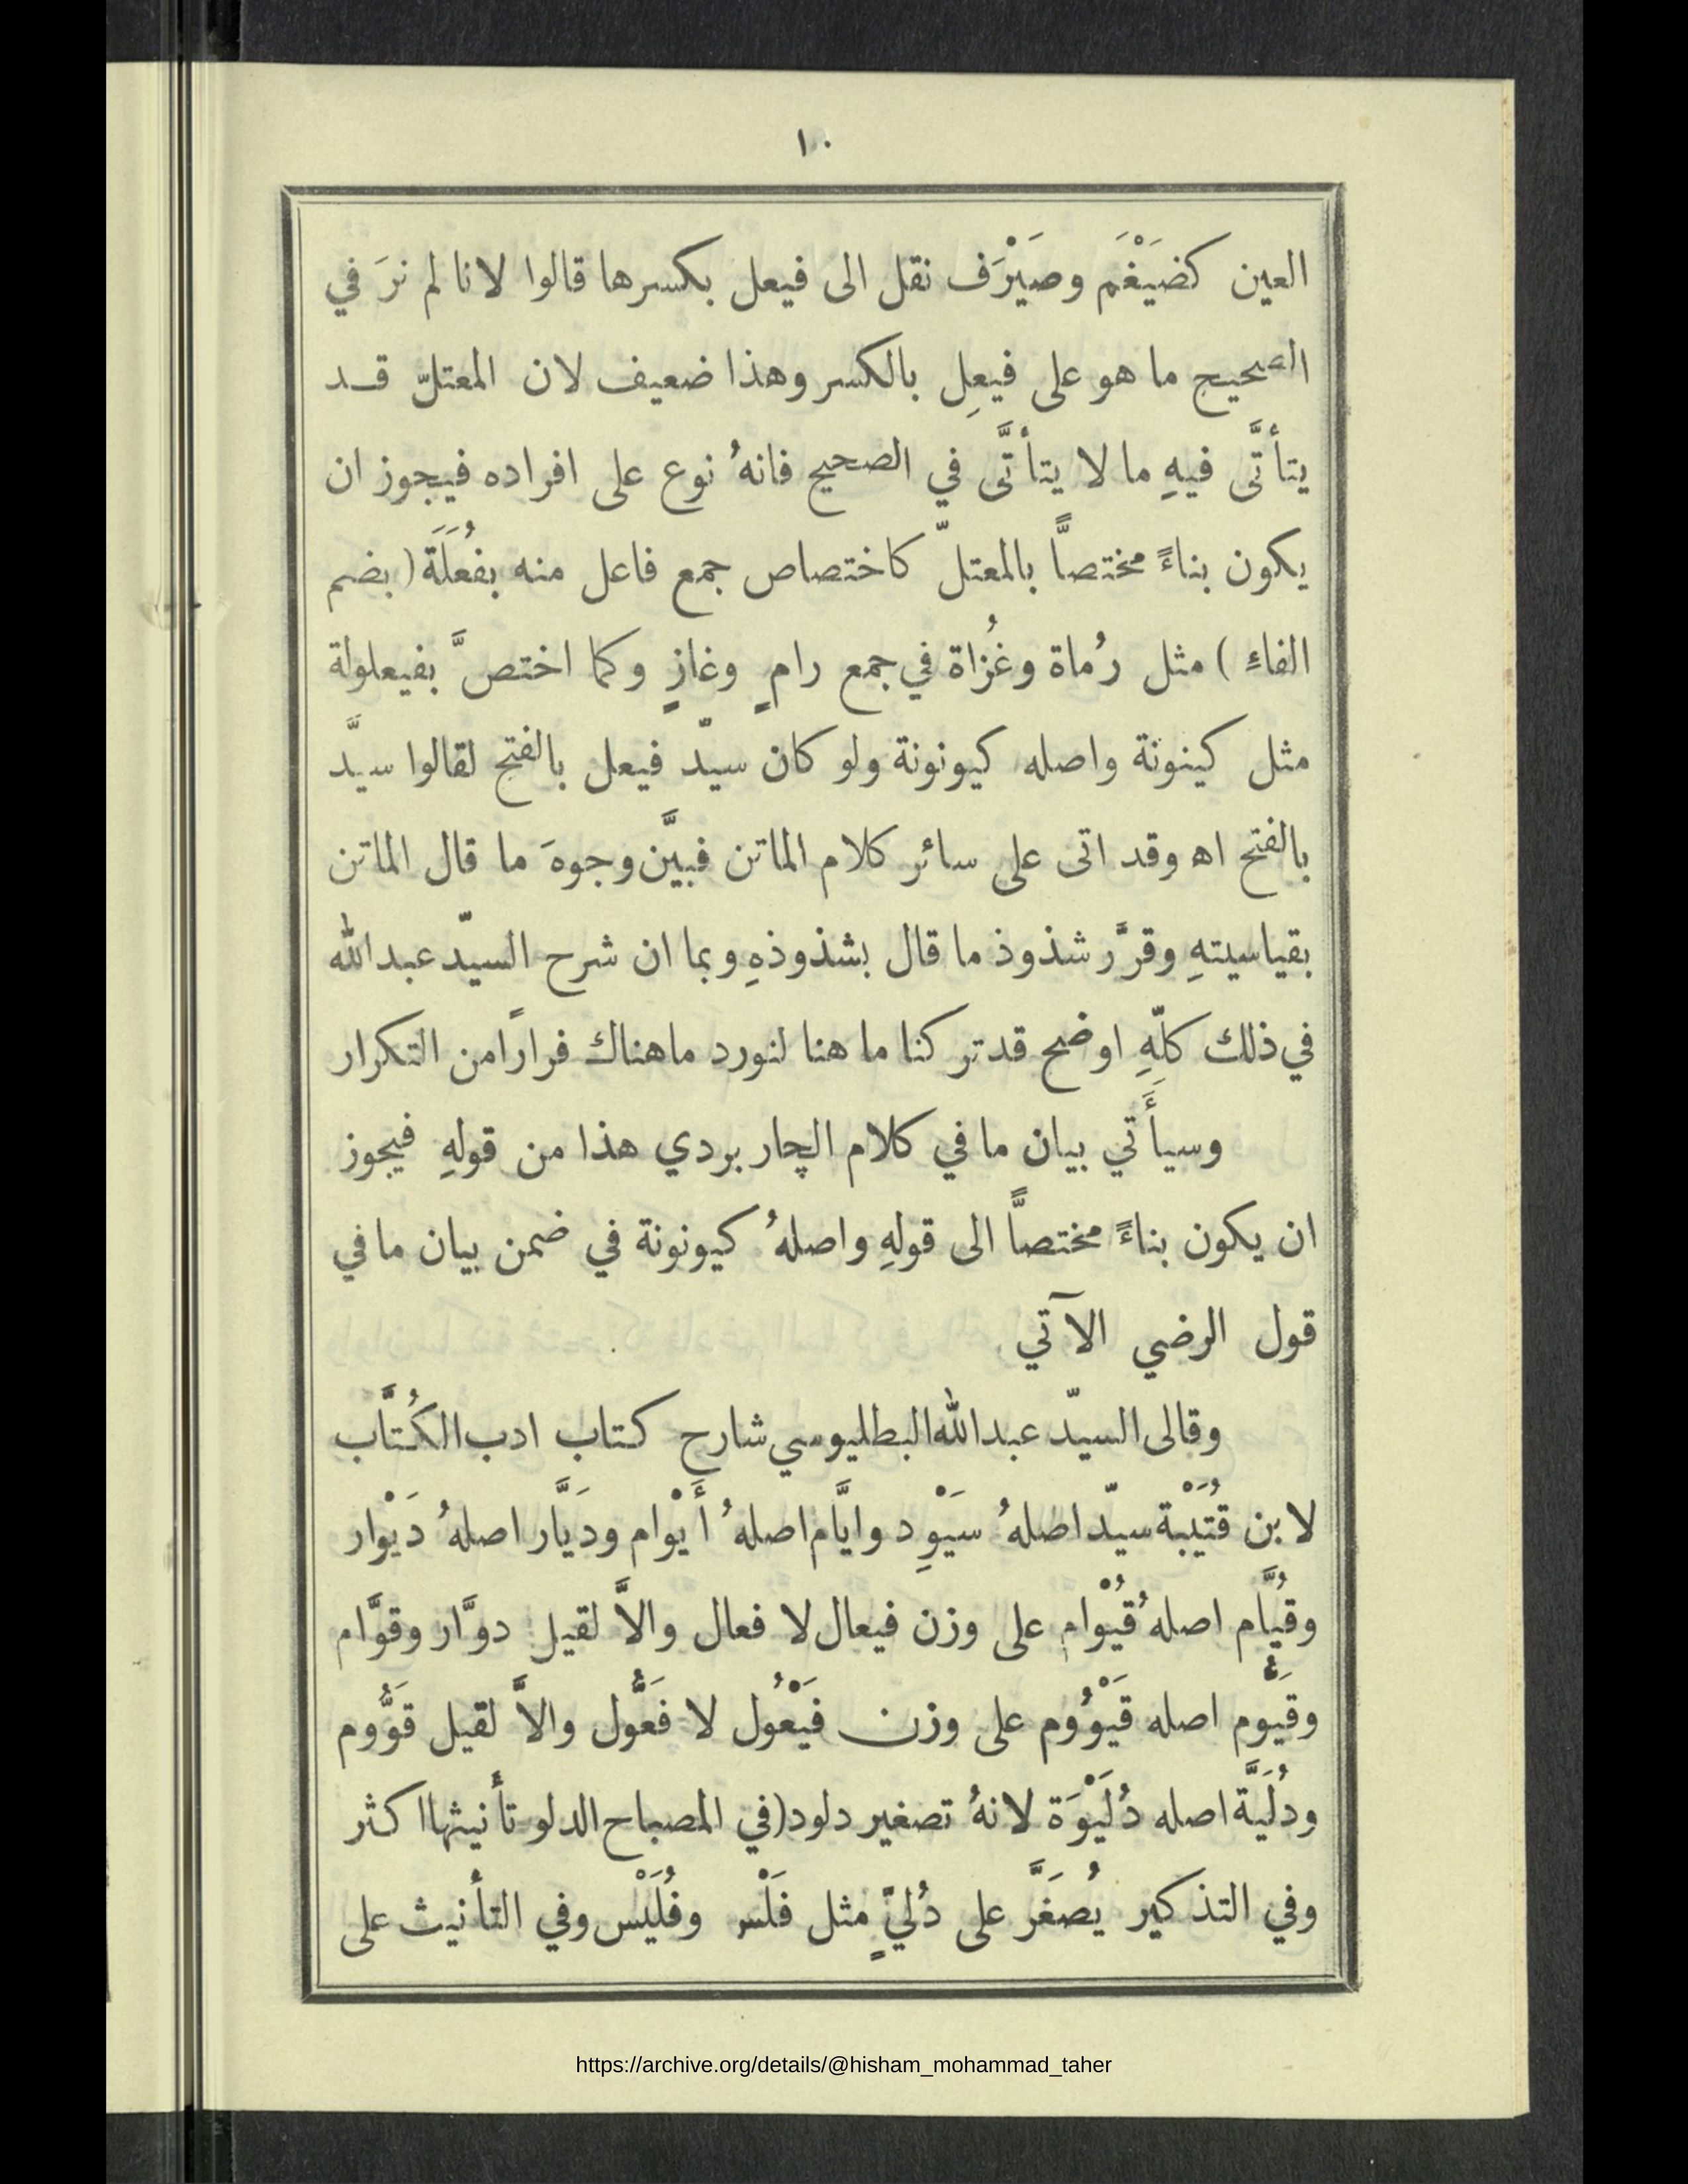 ١٠
العين كضَيْغَم وصَيْرَف نقل الى فيعل بكسرها قالوا لانا لم نرَ في
الصحيح ما هو على فيعِل بالكسر وهذا ضعيف لان المعتلّ قد
يتأتَّى فيهِ ما لا يتأتَّى في الصحيح فانهُ نوع على افراده فيجوز ان
يكون بناءً مختصاً بالمعتلّ كاختصاص جمع فاعل منه بفُعَلَة ( بضم
الفاءِ ) مثل رُماة وغُزاة في جمع رامٍ وغازٍ وكما اختصَّ بفيعلولة
مثل كينونة واصله كيونونة ولو كان سيّد فيعل بالفتح لقالوا سيَّد
بالفتح اه وقد اتى على سائر كلام الماتن فبيَّن وجوهَ ما قال الماتن
بقياسيتهِ وقرَّر شذوذ ما قال بشذوذهِ وبما ان شرح السيّد عبدالله
في ذلك كلّهِ اوضح قد تركنا ما هنا لنورد ما هناك فراراً من التكرار
وسيأَتي بيان ما في كلام الچاربردي هذا من قولهِ فيجوز
ان يكون بناءً مختصاً الى قولهِ واصلهُ كيونونة في ضمن بيان ما في
قول الرضي الآتي
وقالى السيّد عبدالله البطليوسي شارح كتاب ادب الكُتَّاب
لابن قُتَيْبة سيّد اصلهُ سَيْوِد وايَّام اصلهُ أَيْوام ودَيَّار اصلهُ دَيْوار
وقُيَّام اصلهُ قُيْوام على وزن فيعال لا فعال والاَّ لقيل دوَّار وقوَّام
وقَيُّوم اصله قَيْوُوم على وزن فَيْعُول لا فَعُّول والاَّ لقيل قَوُّوم
ودُلَيَّة اصله دُلَيْوَة لانهُ تصغير دلود(في المصباح الدلو تأنيثها اكثر
وفي التذكير يُصَغَّر على دُليٍّ مثل فَلْس وفُلَيْس وفي التأنيث على
https://archive.org/details/@hisham_mohammad_taher